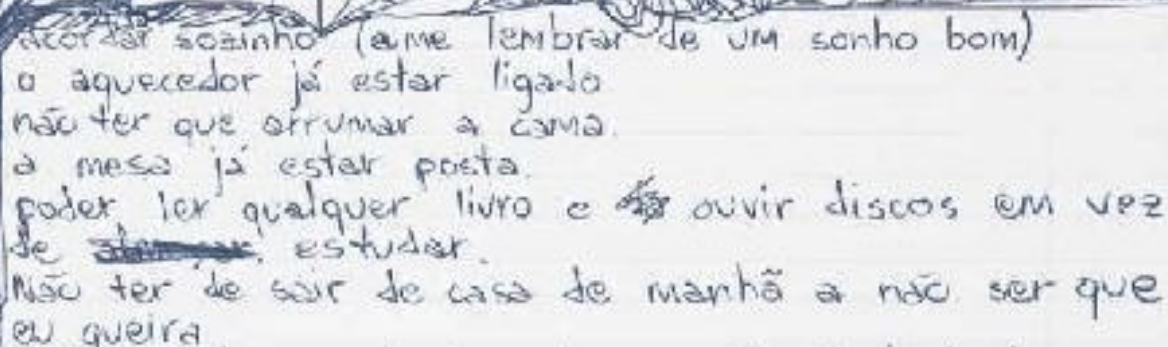 acordar sozinho (a me lembrar de um sonho bom)
o aquecedor já estar ligado
não ter que arrumar a cama.
a mesa já estar posta.
poder ler qualquer livro e ouvir discos em vez
de estudar.
Não ter de sair de casa de manhã a não ser que
eu queira